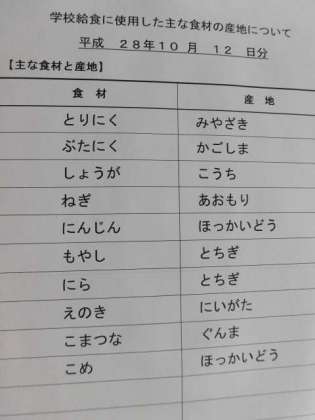 学校給食に使用した主な食材の産地について
平成 28年10月 12 日分
【主な食材と産地】
食材 産地
とりにく みやざき
ぶたにく かごしま
しょうが こうち
ねぎ あおもり
にんじん ほっかいどう
もやし とちぎ
にら とちぎ
えのき にいがた
こまつな ぐんま
こめ ほっかいどう